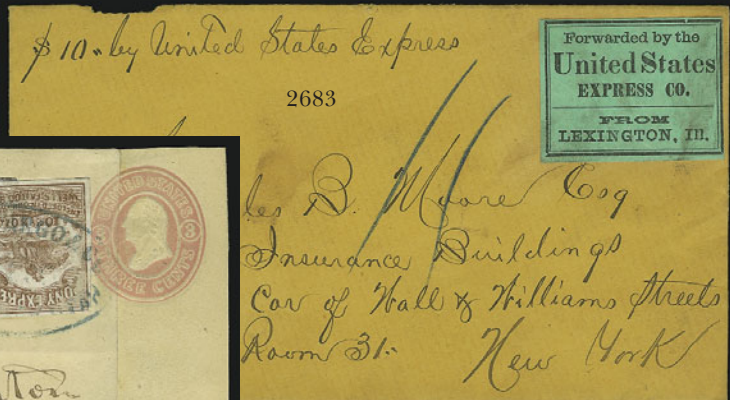 $10 - by United States Express
Forwarded by the
United States
EXPRESS CO.
FROM
LEXINGTON, Ill.
2683
les B. Moore Esq
Insurance Buildings
Cor of Wall & Williams Streets
Room 31.
New York
UNITED STATES
3
THREE CENTS
PONY EXPRE
WELLS FARGO